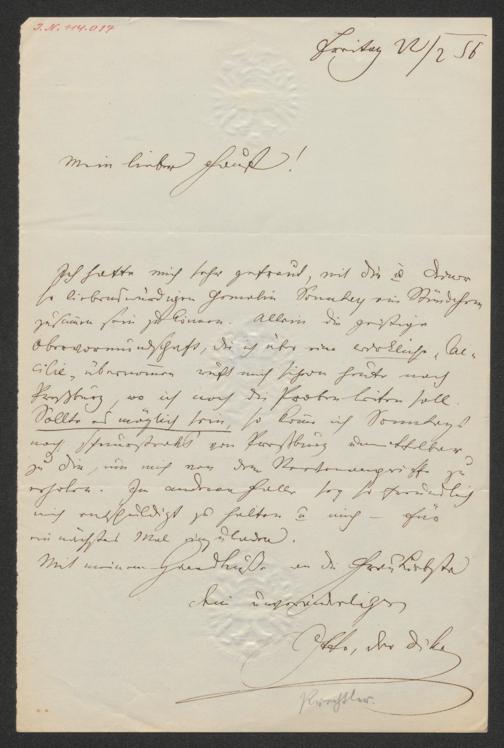 I.N. 114.019
Freitag 22/2 56
Mein lieber Faust!
Ich hatte mich sehr gefreut, mit dir u deiner
so liebenswürdigen Gemalin Sonntag ein Stündchen
zusammen sein zu können. Allein die geistige
Obervormundschaft, die ich über eine wirkliche „Cä-
cilie“ übernommen ruft mich schon heute nach
Preßburg, wo ich noch die Proben leiten soll.
Sollte es möglich sein, so komme ich Sonntags
noch schnurstraks von Preßburg unmittelbar
zu dir, um mich von dem zu
erholen. Im anderen Falle sey so freundlich
mich entschuldigt zu halten u mich – fürs
ein nächstes Mal einzuladen.
Mit meinem Handkuße an die Frau Liebste
dein unveränderlicher
Otto, der dicke
Prechtler.